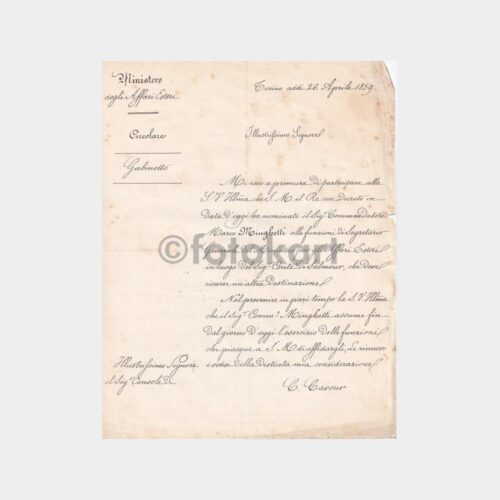 Ministero
degli Affari Esteri
Torino addì 26 Aprile 1859.
Circolare
Illustrissimo Signore
Gabinetto
Mi reco a premura di partecipare alla
S. V. Illma che S. M. il Re con decreto in
data d'oggi ha nominato il Sigr Commendatore
Marco Minghetti alle funzioni di Segretario
Generale del Ministero degli Affari Esteri
©fotokart
in luogo del Sigr Conte di Salmour, che deve
ricevere un'altra destinazione
Nel prevenire in pari tempo la S. V. Illma
che il Sigr Comme Minghetti assume fin
dal giorno d'oggi l'esercizio delle funzioni
che piacque a S. M. di affidargli, Le rinnovo
i sensi della distinta mia considerazione
Illustrissimo Signore
il Sigr Console di
C. Cavour